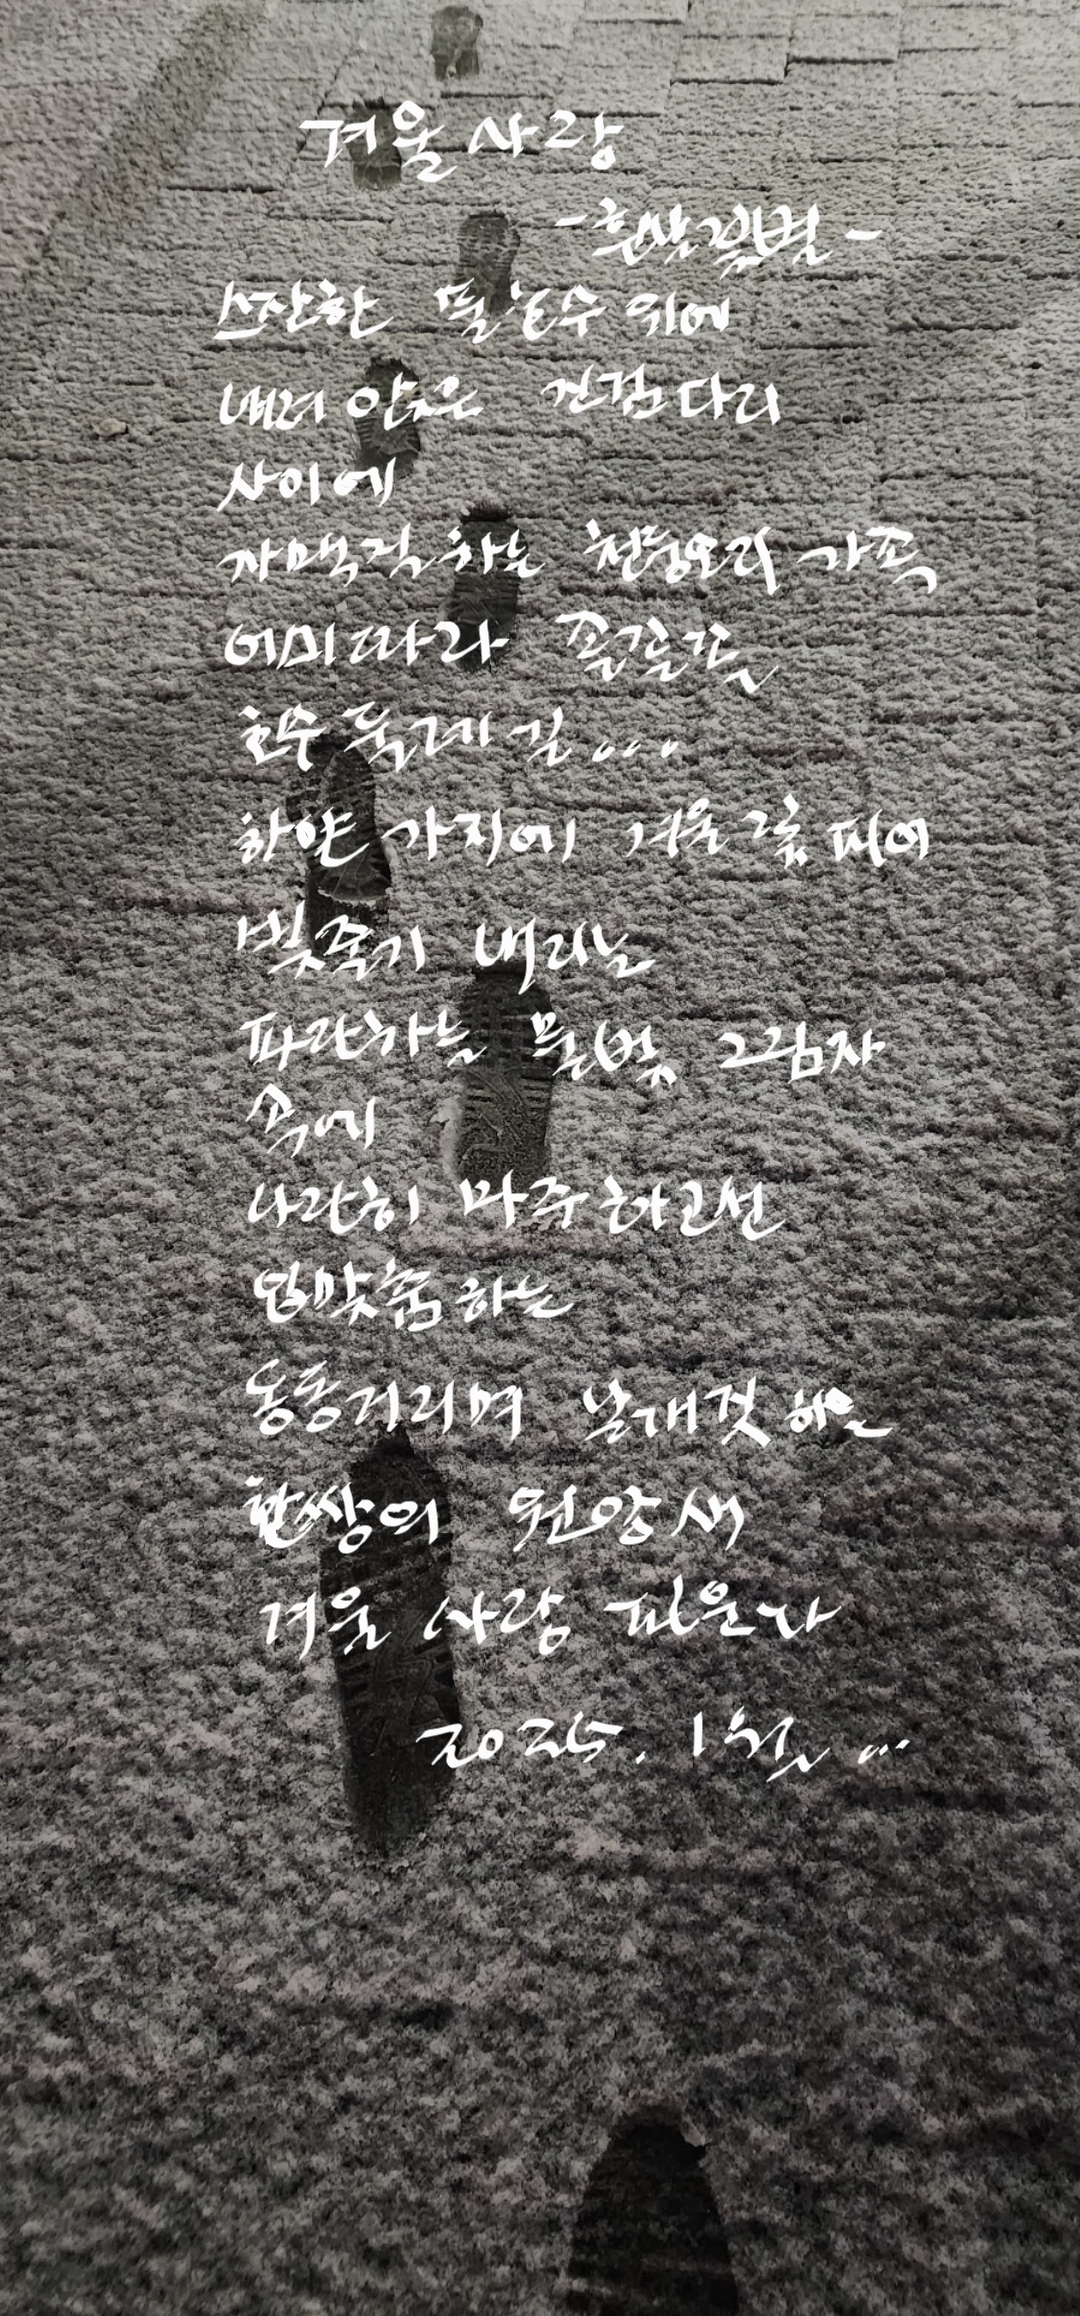 겨울 사랑
- 흰 꽃별 -
스잔한 물 호수 위에
내려 앉은 징검다리
사이에
자맥질하는 청둥오리 가족
어미 따라 졸졸졸
호수 둘레 길...
하얀 가지에 겨울 꽃 피어
빛줄기 내리는
파란하늘 물빛 그림자
속에
나란히 마주하고선
입맞춤 하는
동동거리며 날개짓 하는
한쌍의 원앙새
겨울 사랑 피운다
2025. 1월 ...